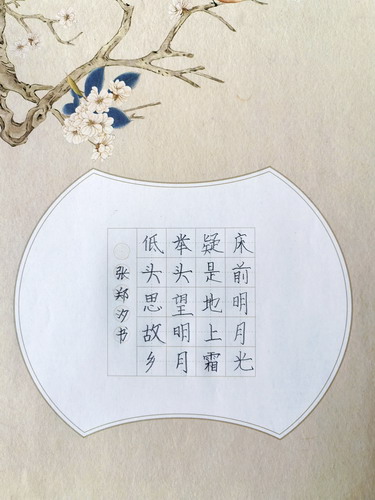 床前明月光
疑是地上霜
举头望明月
低头思故乡
张郑汐书